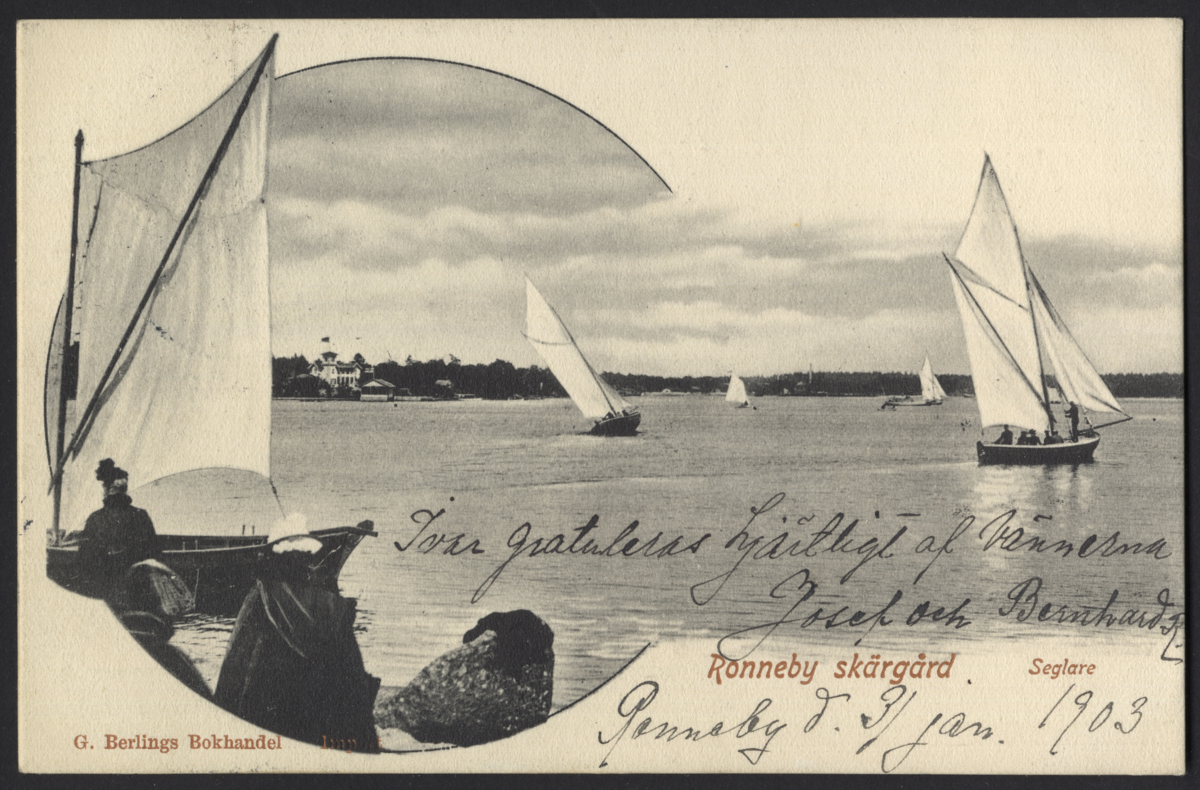 Ivar gratuleras hjärtligt af Vännerna
Josef och Bernhard
Ronneby skärgård. Seglare
Ronneby d. 3/ jan. 1903
G. Berlings Bokhandel